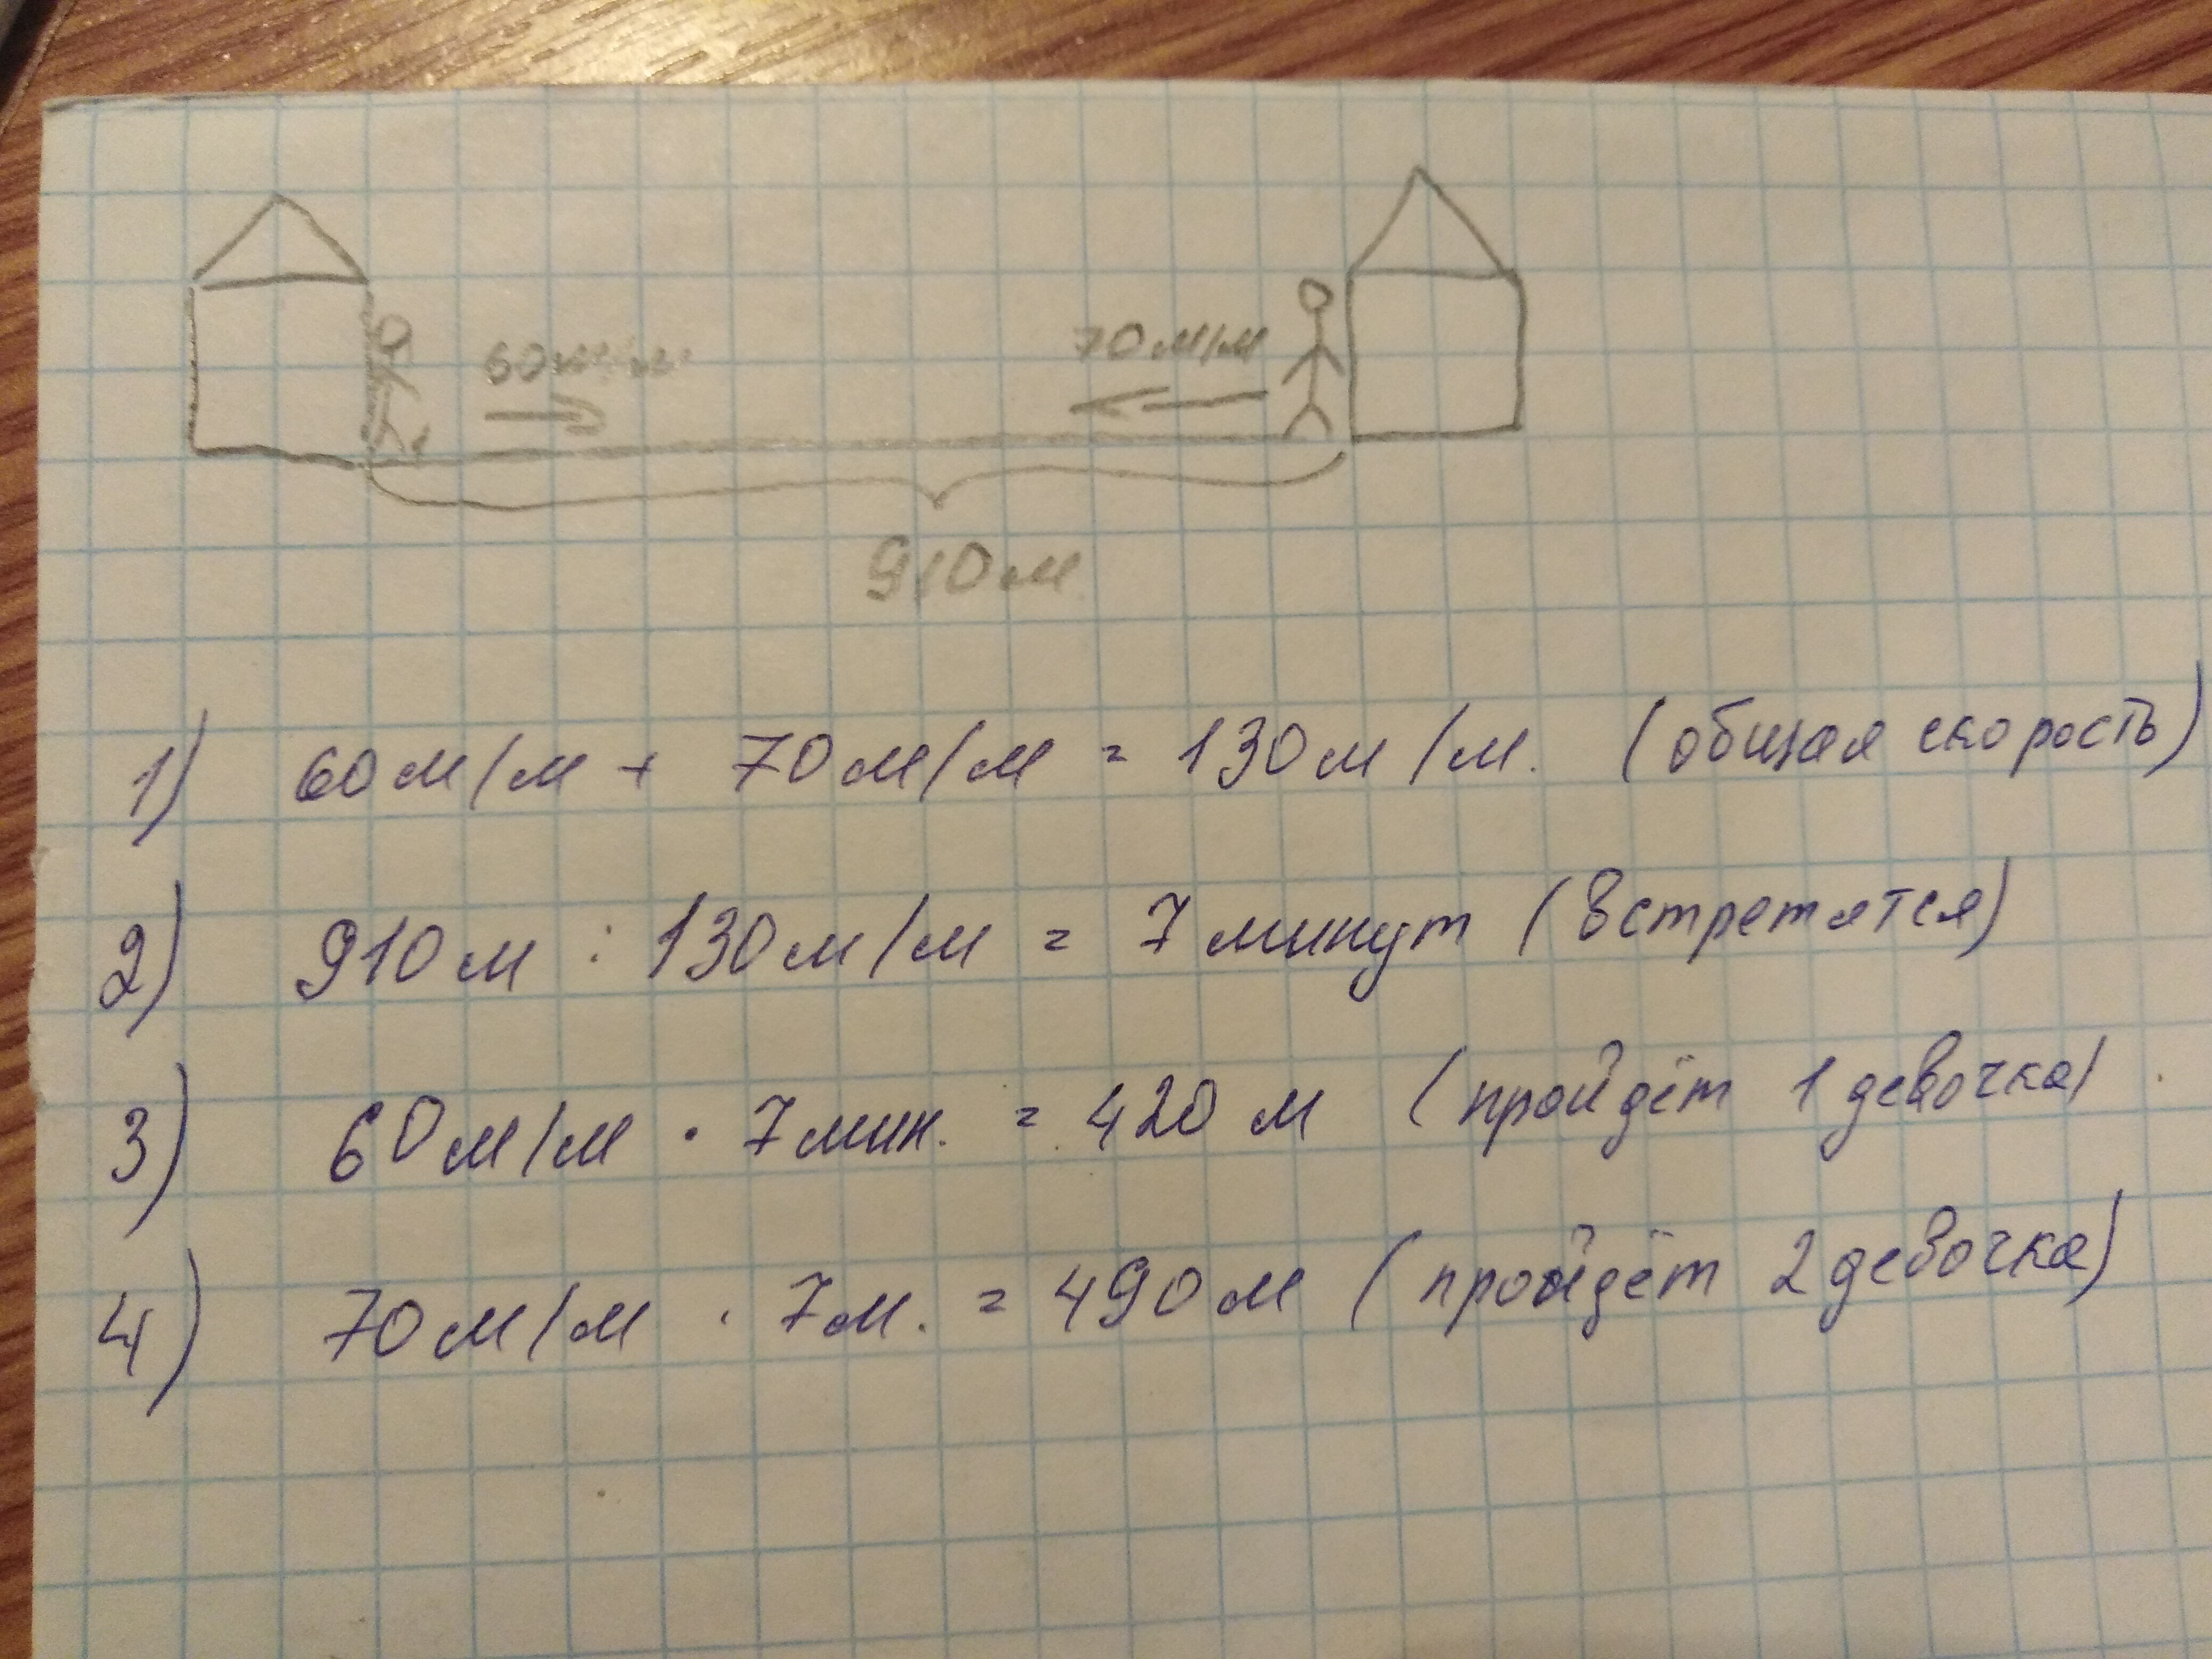 60м/м 70м/м
910м
1) 60м/м + 70м/м = 130м/м. (общая скорость)
2) 910м : 130м/м = 7 минут (встретятся)
3) 60м/м · 7мин. = 420 м (пройдёт 1 девочка)
4) 70м/м · 7м. = 490м (пройдёт 2 девочка)